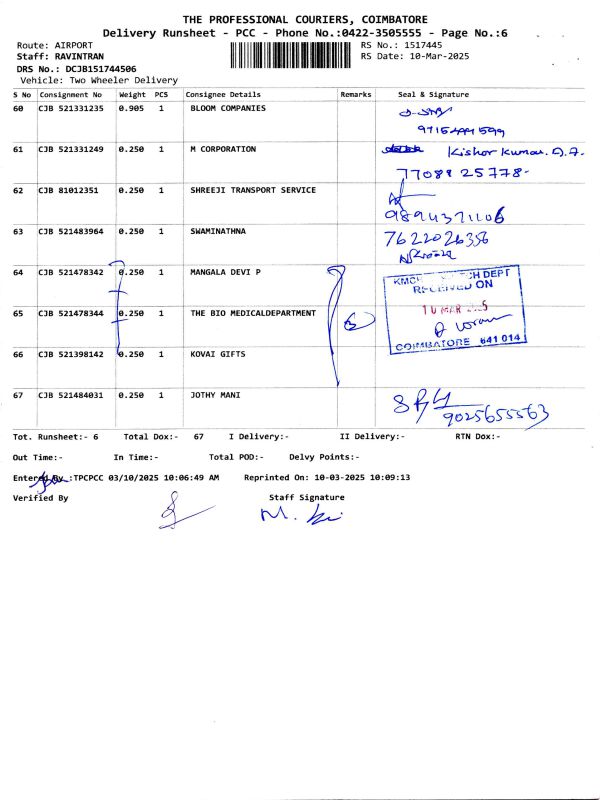 THE PROFESSIONAL COURIERS, COIMBATORE
Delivery Runsheet - PCC - Phone No.:0422-3505555 - Page No.:6
Route: AIRPORT
RS No.: 1517445
Staff: RAVINTRAN
RS Date: 10-Mar-2025
DRS No.: DCJB151744506
Vehicle: Two Wheeler Delivery
S No Consignment No Weight PCS Consignee Details Remarks Seal & Signature
60 CJB 521331235 0.905 1 BLOOM COMPANIES
61 CJB 521331249 0.250 1 M CORPORATION Kishor Kumar.
77088 25778-
62 CJB 81012351 0.250 1 SHREEJI TRANSPORT SERVICE
9894371106
63 CJB 521483964 0.250 1 SWAMINATHNA 7622026356
64 CJB 521478342 0.250 1 MANGALA DEVI P
DEPT
RECEIVED ON
65 CJB 521478344 0.250 1 THE BIO MEDICALDEPARTMENT
10 MAR
COIMBATORE 641 014
66 CJB 521398142 0.250 1 KOVAI GIFTS
67 CJB 521484031 0.250 1 JOTHY MANI
9025655563
Tot. Runsheet:- 6 Total Dox:- 67 I Delivery:- II Delivery:- RTN Dox:-
Out Time:- In Time:- Total POD:- Delvy Points:-
Entered By :TPCPCC 03/10/2025 10:06:49 AM Reprinted On: 10-03-2025 10:09:13
Verified By Staff Signature